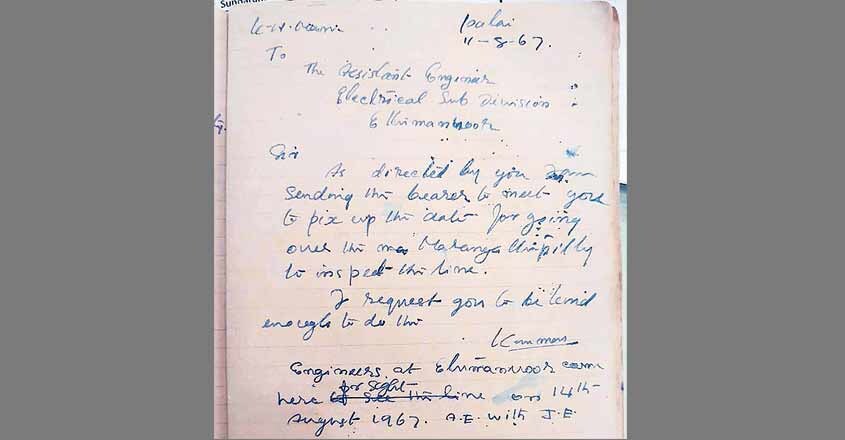 K.M.Mani Palai
11-8-67.
To
The Assistant Engineer
Electrical Sub Division
Ettumanoor
Sir
As directed by you I am
sending the bearer to meet you
to pix up the date for going
over the Marangattupilly
to inspect the line.
I request you to be kind
enough to do this
Engineers at Ettumanoor came
here for sight on 14th
August 1967. A.E. with J.E.